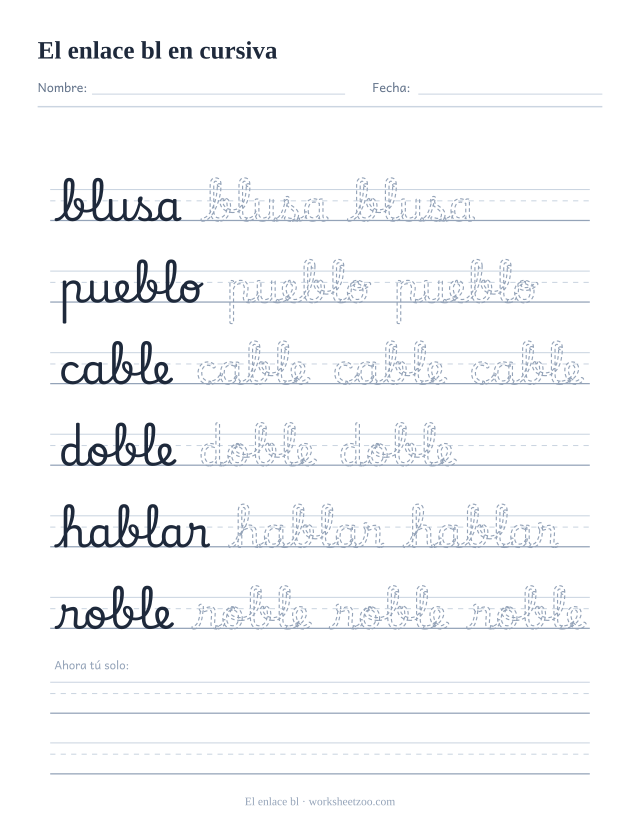 El enlace bl en cursiva
Nombre: Fecha:
blusa blusa blusa
pueblo pueblo pueblo
cable cable cable cable
doble doble doble
hablar hablar hablar
roble roble roble roble
Ahora tú solo:
El enlace bl · worksheetzoo.com